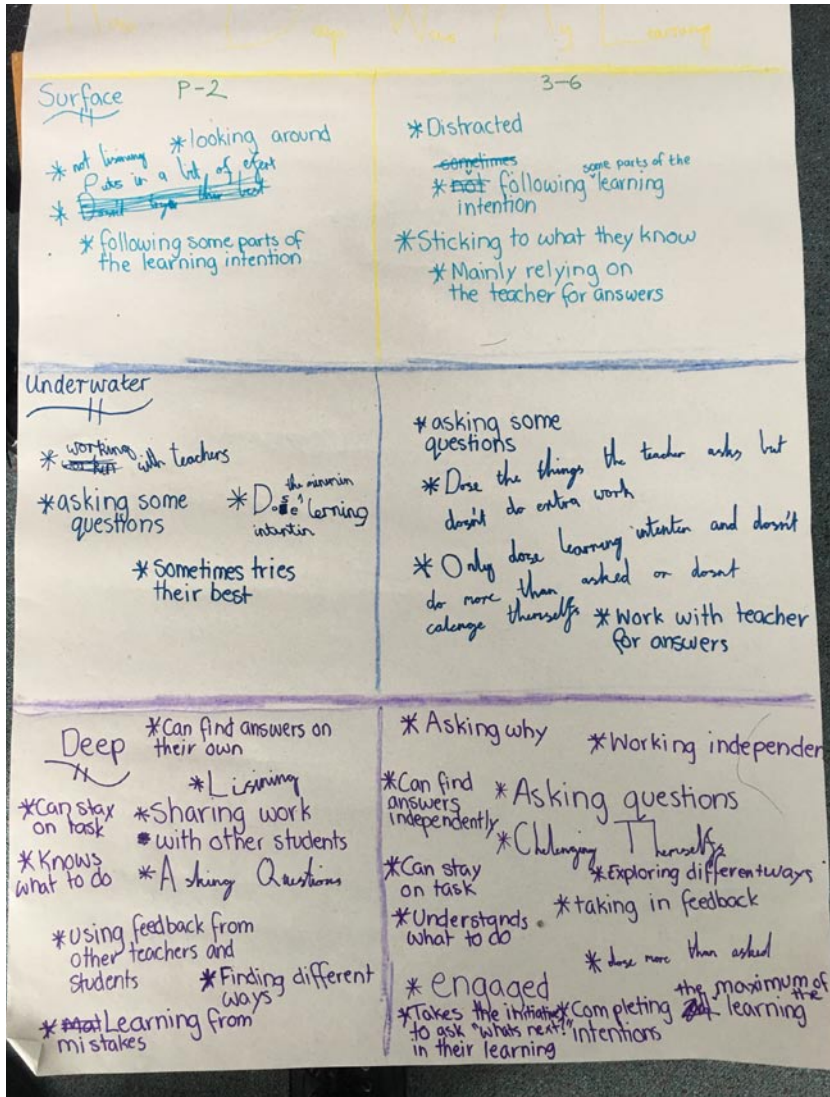 How Deep Was My Learning
Surface
P-2
3-6
*looking around
* not lisining
* Puts in a bit of efert
* following some parts of
the learning intention
*Distracted
* following some parts of the learning
intention
*Sticking to what they know
*Mainly relying on
the teacher for answers
Underwater
* working with teachers
*asking some
questions
* Dose the minimin lerning
intentin
*Sometimes tries
their best
*asking some
questions
*Dose the things the teacher asks but
dosn't do extra work
* Only dose learning intenten and dosn't
do more than asked or dosnt
calenge themselfs
*Work with teacher
for answers
Deep
*Can find answers on
their own
*Lisining
*Can stay
on task
*Sharing work
with other students
*Knows
what to do
*Asking Questions
*using feedback from
other teachers and
students
*Finding different
ways
*Learning from
mistakes
*Asking why
*Working independen
*Can find
answers
independently
*Asking questions
*Chelenging Themselfs
*Can stay
on task
*Exploring different ways
*Understands
what to do
*taking in feedback
* dose more than asked
* engaged
*Takes the initiative
to ask "whats next?"
in their learning
*Completing the maximum of the learning
intentions